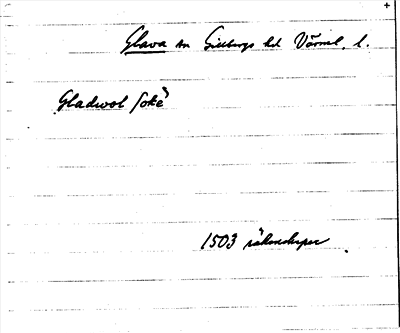 +
Glava sn Gillbergs hd Värml. l.
Gladwol sokē
1503 räkenskaper